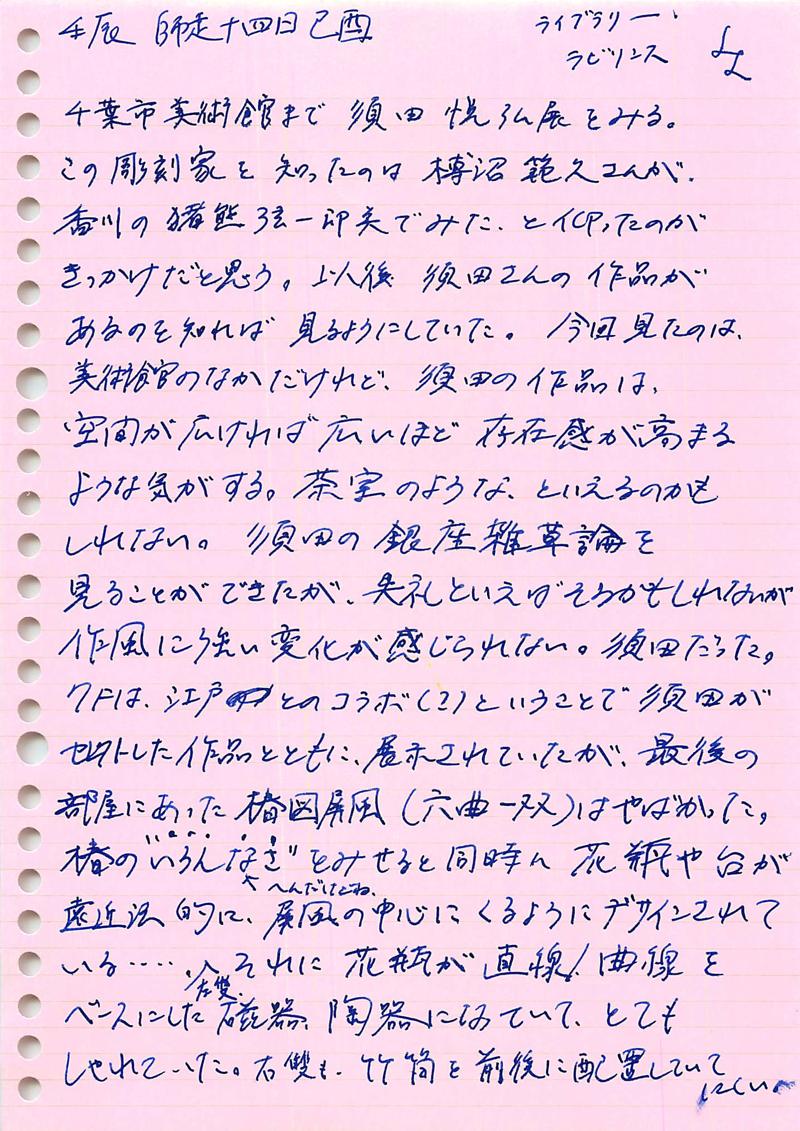 壬辰 師走十四日 己酉
ライブラリー・
ラビリンス
LL
千葉市美術館まで 須田 悦弘展をみる。
この彫刻家を 知ったのは 樽沼 範久さんが、
香川の 猪熊弦一郎美でみた、と仰ったのが
きっかけだと思う。以後 須田さんの 作品が
あるのを知れば 見るようにしていた。 今回見たのは、
美術館のなかだけれど、 須田の作品は、
空間が広ければ広いほど 存在感が高まる
ような気がする。茶室のような、といえるのかも
しれない。 須田の 銀座雑草論を
見ることができたが、失礼といえばそうかもしれないが
作風に強い変化が感じられない。須田だった。
7Fは、江戸とのコラボ(?)ということで 須田が
セレクトした作品とともに、展示されていたが、最後の
部屋にあった 椿図屏風(六曲一双)はやばかった。
椿の"いろんなさ"をみせると同時に 花瓶や台が
へんだけどね、
遠近法的に、屏風の中心にくるようにデザインされて
いる……、それに 花瓶が 直線/曲線を
左雙、
ベースにした 磁器、陶器になっていて、とても
しゃれていた。右雙も、竹筒を前後に配置していて
にくい。